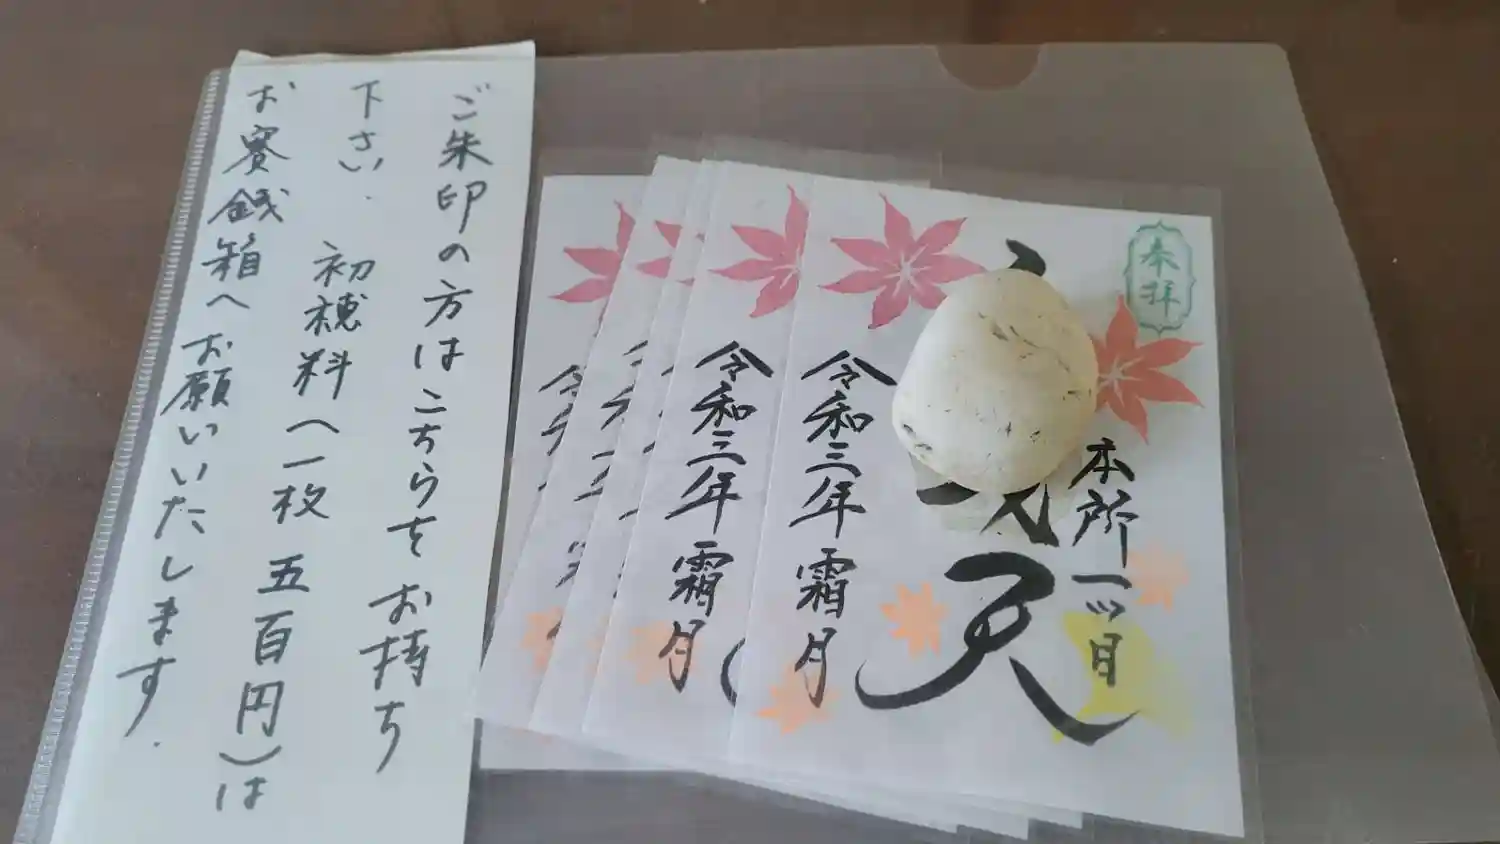 ご朱印の方はこちらをお持ち
下さい. 初穂料(一枚 五百円)は
お賽銭箱へお願いいたします.
奉拝
本所一ツ目
天
令和三年 霜月
令和三年 霜月